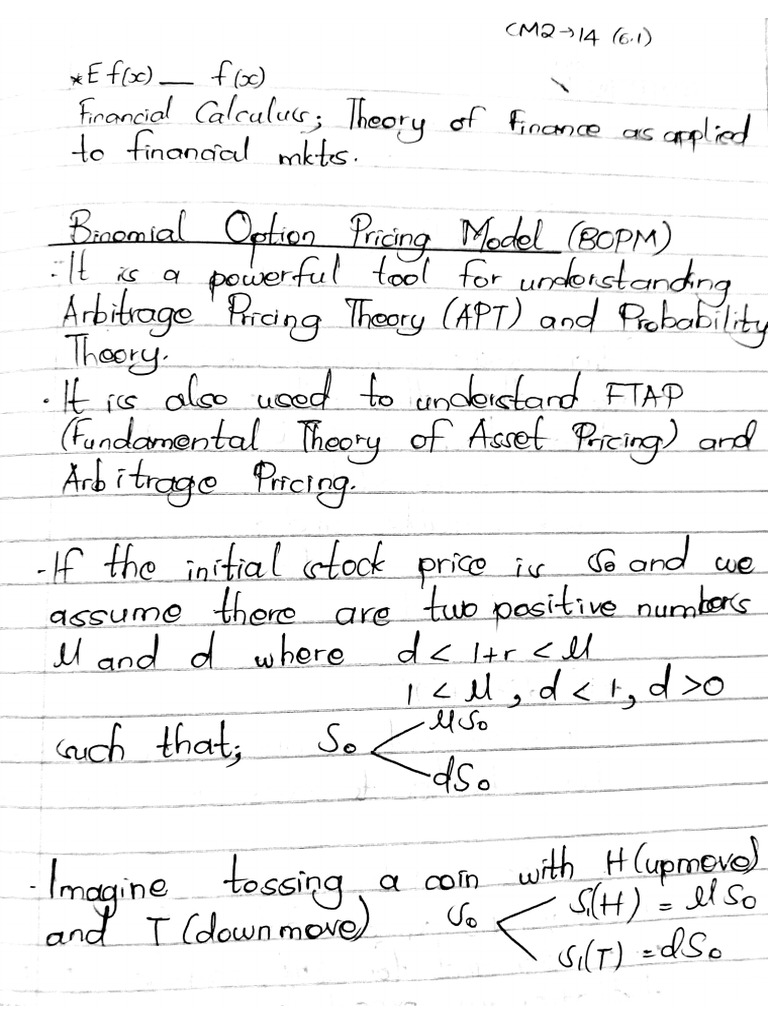 CM2→14 (6.1)
*Ef(x) — f(x)
Financial Calculus; Theory of Finance as applied
to financial mkts.
Binomial Option Pricing Model (BOPM)
- It is a powerful tool for understanding
Arbitrage Pricing Theory (APT) and Probability
Theory.
· It is also used to understand FTAP
(Fundamental Theory of Asset Pricing) and
Arbitrage Pricing.
- If the initial stock price is S₀ and we
assume there are two positive numbers
U and d where d < 1+r < U
1 < U, d < 1, d > 0
such that; S₀ < US₀
dS₀
- Imagine tossing a coin with H (upmove)
and T (downmove) S₀ < S₁(H) = US₀
S₁(T) = dS₀